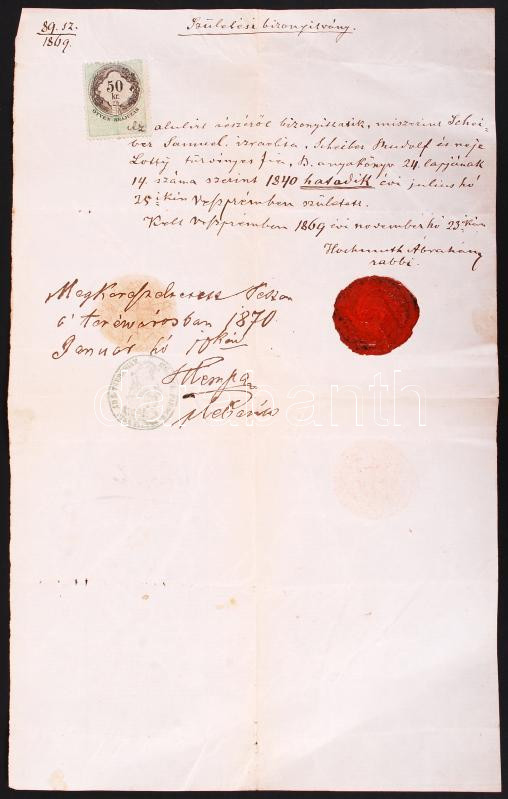 89. sz.
1869.
Születési bizonyítvány.
50
kr.
ÖTVEN KRAJCZÁR
Az alulirt részéről bizonyittatik, miszerint Schei-
ber Samuel izraelita, Scheiber Rudolf és neje
Lotty törvényes fia, B. anyakönyv 24. lapjának
14. száma szerint 1840 hatodik évi julius hó
25-ikén Veszprémben született.
Kelt Veszprémben 1869 évi november hó 23-kán
Hochmuth Ábrahám
rabbi.
Megkeresztelve Pesten
a terézvárosban 1870
Január hó
darabanth